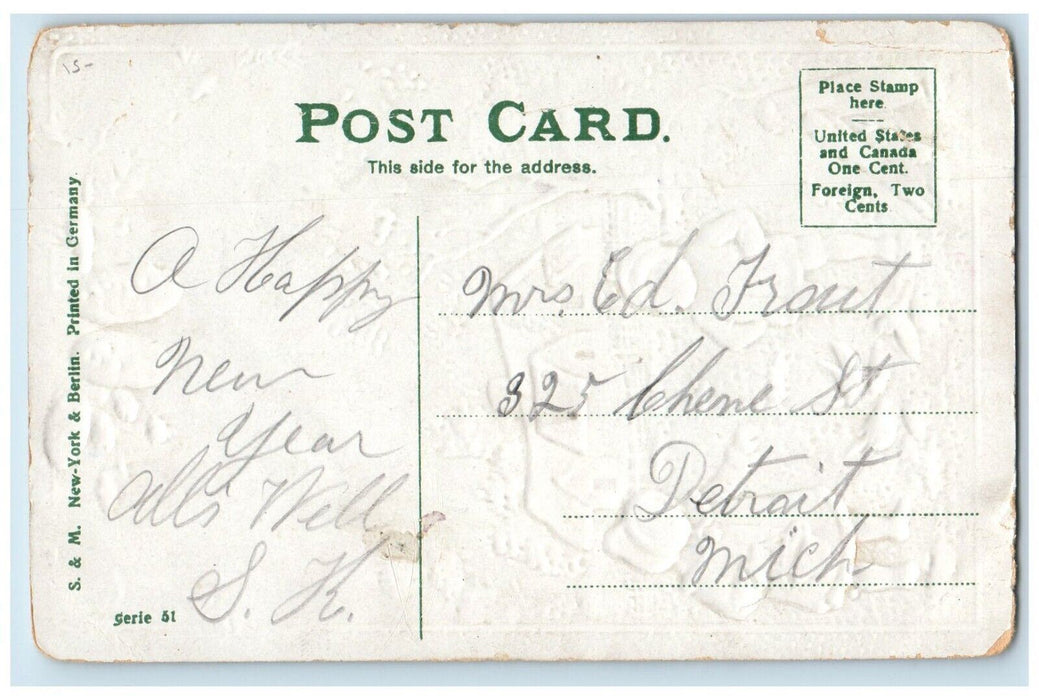 15-
POST CARD.
This side for the address.
Place Stamp
here.
United States
and Canada
One Cent.
Foreign, Two
Cents
S. & M. New-York & Berlin. Printed in Germany.
A Happy
New
Year
All's Well
S. K.
Serie 51
Mrs. Ed. Trout
325 Chene St
Detroit
Mich